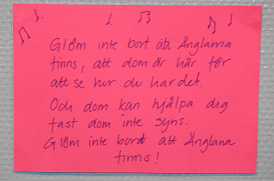 Glöm inte bort att Änglarna
finns, att dom är här för
att se hur du har det.
Och dom kan hjälpa dig
fast dom inte syns.
Glöm inte bort att Änglana
finns!